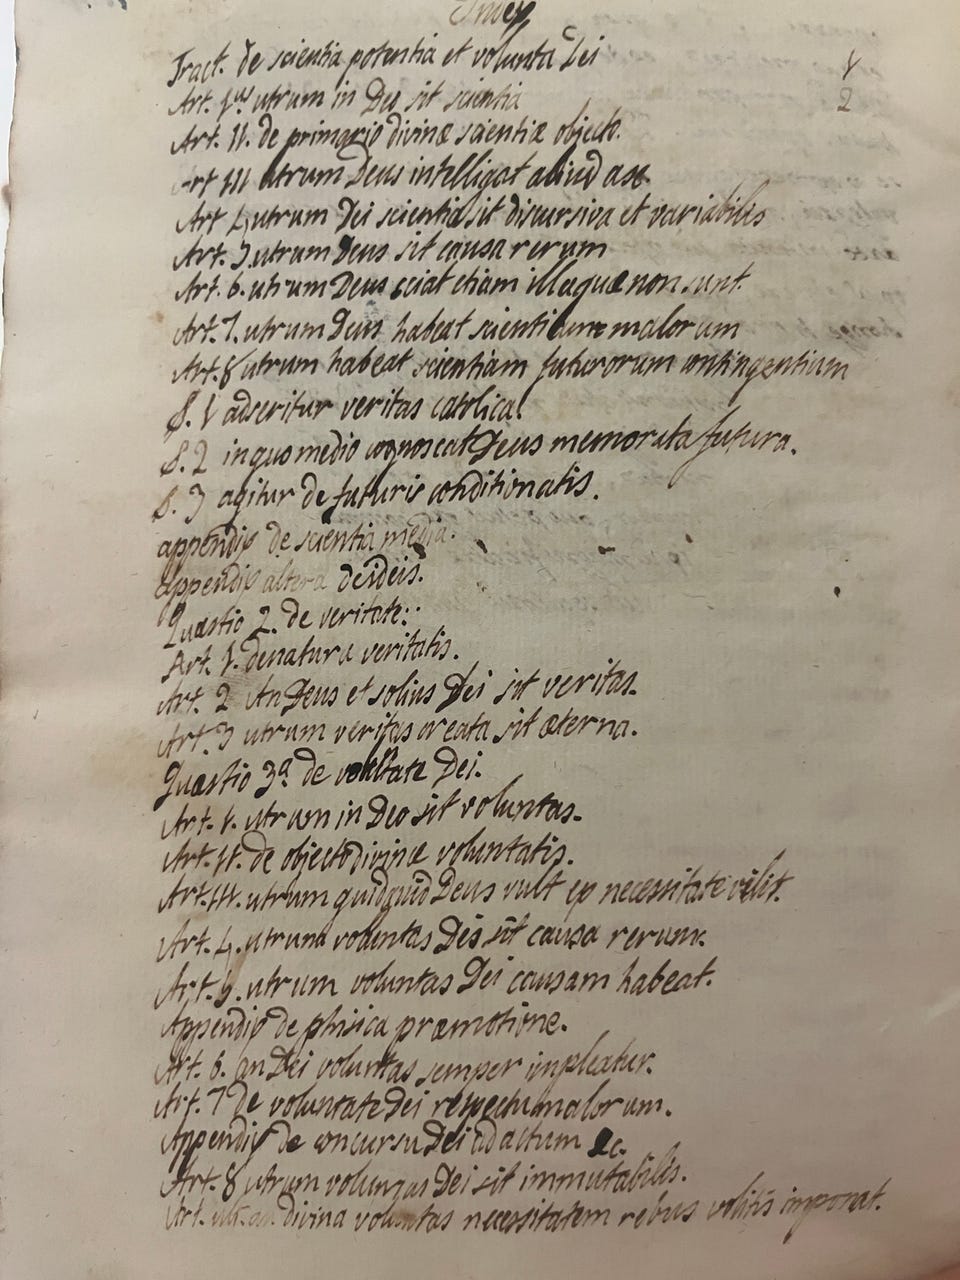 Index
Tract. de scientia potentia et volunta Dei 1
Art. 1us utrum in Deo sit scientia 2
Art. 11. de primario divinæ scientiæ objecto.
Art 111 utrum Deus intelligat aliud a se
Art 4 utrum Dei scientia sit discursiva et variabilis
Art. 5. utrum Deus sit causa rerum
Art. 6. utrum Deus sciat etiam illa quæ non sunt.
Art. 7. utrum Deus habeat scientiam malorum
Art. 8 utrum habeat scientiam futurorum contingentium
§. 1 adseritur veritas catolica.
§. 2 in quo medio cognoscat Deus memorata futura.
§. 3 agitur de futuris conditionatis.
appendix de scientia media.
appendix altera de ideis.
Quæstio 2. de veritate:.
Art. 1. de natura veritatis.
Art. 2 An Deus et solius Dei sit veritas.
Art. 3 utrum veritas creata sit æterna.
Quæstio 3a de voltate Dei.
Art. 1. utrum in Deo sit voluntas.
Art. 11. de objecto divinæ voluntatis.
Art. 111. utrum quidquid Deus vult ex necessitate velit.
Art. 4. utrum voluntas Dei sit causa rerum.
Art. 5. utrum voluntas Dei causam habeat.
Appendix de phisica præmotione.
Art. 6. an Dei voluntas semper impleatur.
Art. 7 de voluntate Dei respectu malorum.
Appendix de concursu Dei ad actum &c.
Art. 8 utrum voluntas Dei sit immutabilis.
Art. ult. an divina voluntas necessitatem rebus volitis imponat.